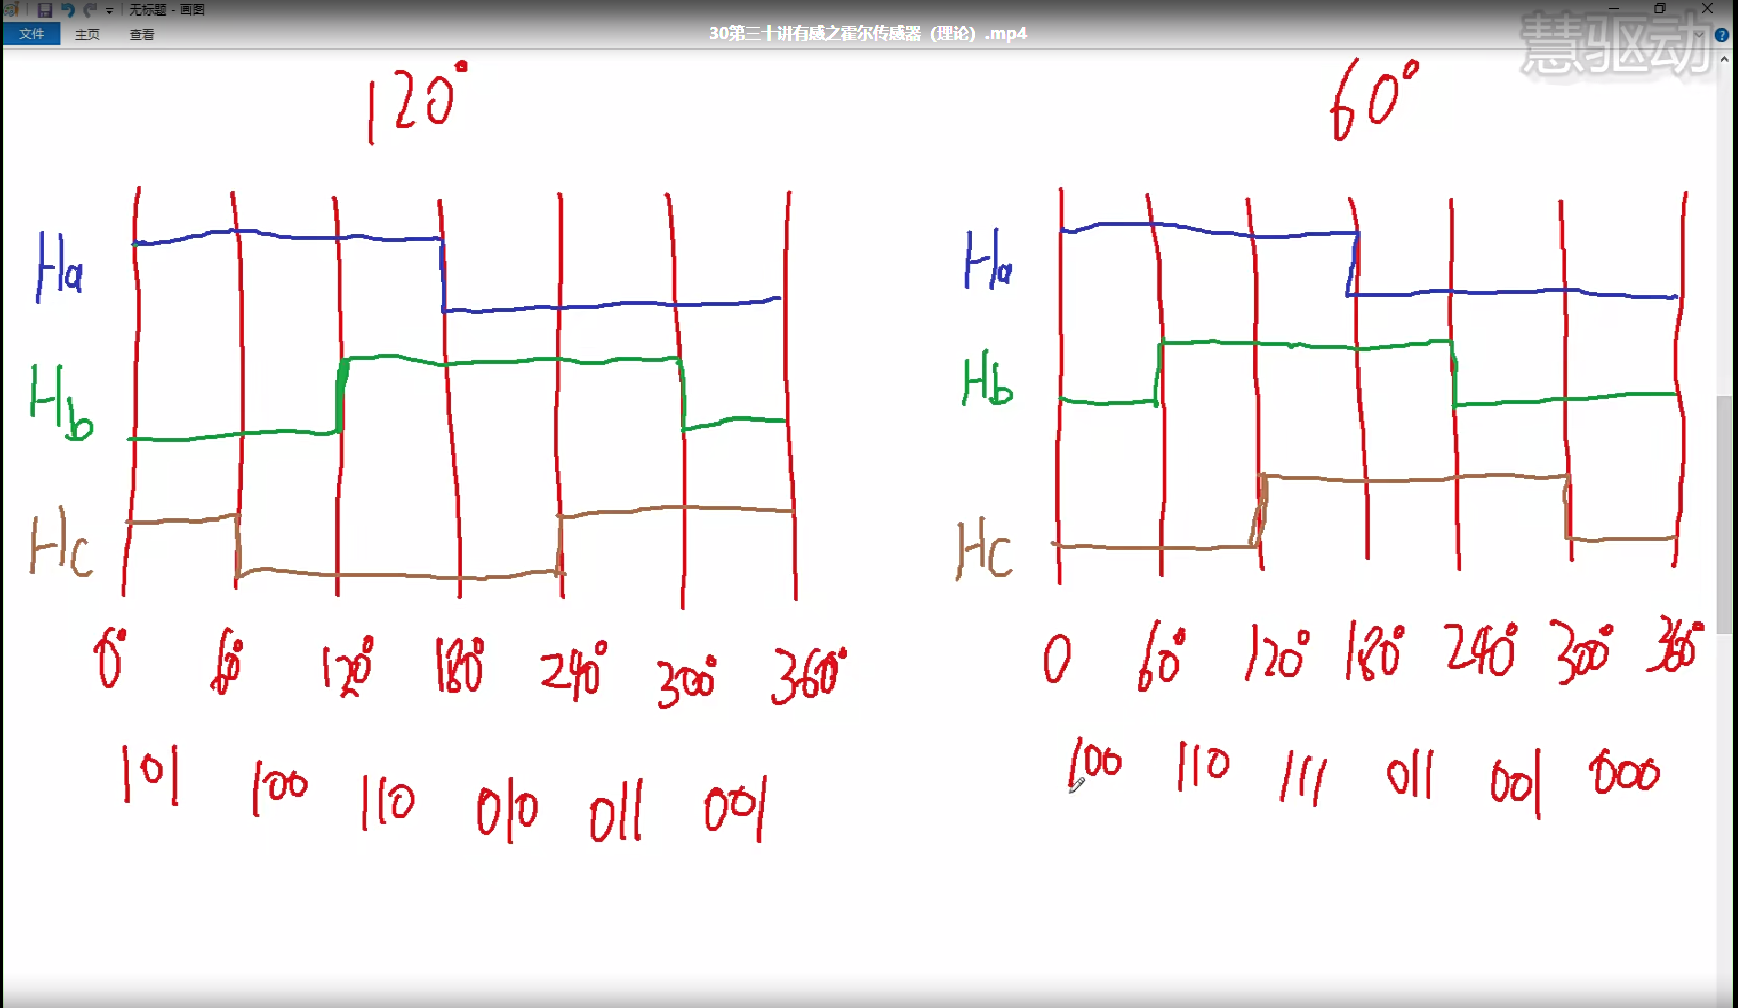 无标题 - 画图
文件 主页 查看
30第三十讲有感之霍尔传感器（理论）.mp4
慧驱动
120°
60°
Ha
Hb
Hc
0° 60° 120° 180° 240° 300° 360°
101 100 110 010 011 001
Ha
Hb
Hc
0 60° 120° 180° 240° 300° 360°
100 110 111 011 001 000